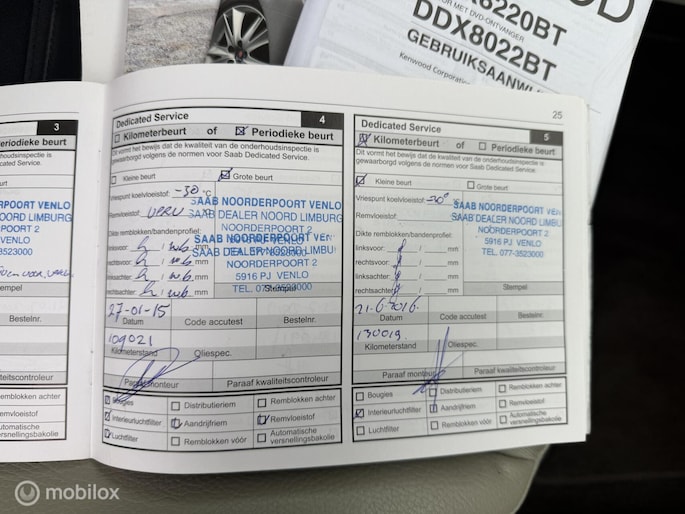 6220BT
OR MET DVD-ONTVANGER
DDX8022BT
GEBRUIKSAANW
Kenwood Corporation
3
Periodieke beurt
OORDERPOORT VENLO
NOORD LIMBURG
RPOORT 2
VENLO
3523000
Bestelnr.
Remblokken achter
Remvloeistof
Automatische
versnellingsbakolie
Dedicated Service 4
Kilometerbeurt of Periodieke beurt
Dit vormt het bewijs dat de kwaliteit van de onderhoudsinspectie is
gewaarborgd volgens de normen voor Saab Dedicated Service.
Kleine beurt Grote beurt
Vriespunt koelvloeistof: -30 °C
SAAB NOORDERPOORT VENLO
Remvloeistof:
SAAB DEALER NOORD LIMBURG
NOORDERPOORT 2
Dikte remblokken/bandenprofiel:
SAAB NOORDERPOORT VEN
SAAB DEALER NOORD LIMBU
NOORDERPOORT 2
5916 PJ VENLO
TEL. 077-3523000
linksvoor: mm
rechtsvoor: mm
linksachter: mm
rechtsachter: mm
Stempel
27-01-15
Datum Code accutest Bestelnr.
109021
Kilometerstand Oliespec.
Paraaf monteur Paraaf kwaliteitscontroleur
Bougies Distributieriem Remblokken achter
Interieurluchtfilter Aandrijfriem Remvloeistof
Luchtfilter Remblokken vóór Automatische
versnellingsbakolie
25
Dedicated Service 5
Kilometerbeurt of Periodieke beurt
Dit vormt het bewijs dat de kwaliteit van de onderhoudsinspectie is
gewaarborgd volgens de normen voor Saab Dedicated Service.
Kleine beurt Grote beurt
Vriespunt koelvloeistof: -30°
SAAB NOORDERPOORT VENLO
Remvloeistof:
SAAB DEALER NOORD LIMBURG
NOORDERPOORT 2
5916 PJ VENLO
TEL. 077-3523000
Dikte remblokken/bandenprofiel:
linksvoor: mm
rechtsvoor: mm
linksachter: mm
rechtsachter: mm
Stempel
21-6-2016
Datum Code accutest Bestelnr.
130019
Kilometerstand Oliespec.
Paraaf monteur Paraaf kwaliteitscontroleur
Bougies Distributieriem Remblokken achter
Interieurluchtfilter Aandrijfriem Remvloeistof
Luchtfilter Remblokken vóór Automatische
versnellingsbakolie
mobilox